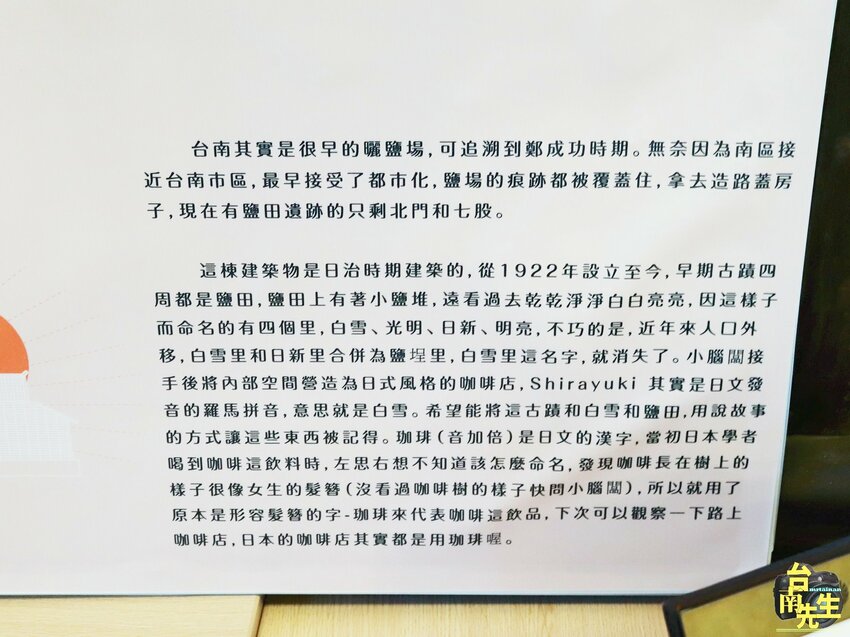 台南其實是很早的曬鹽場,可追溯到鄭成功時期。無奈因為南區接
近台南市區,最早接受了都市化,鹽場的痕跡都被覆蓋住,拿去造路蓋房
子,現在有鹽田遺跡的只剩北門和七股。
這棟建築物是日治時期建築的,從1922年設立至今,早期古蹟四
周都是鹽田,鹽田上有著小鹽堆,遠看過去乾乾淨淨白白亮亮,因這樣子
而命名的有四個里,白雪、光明、日新、明亮,不巧的是,近年來人口外
移,白雪里和日新里合併為鹽埕里,白雪里這名字,就消失了。小腦闆接
手後將內部空間營造為日式風格的咖啡店,Shirayuki 其實是日文發
音的羅馬拼音,意思就是白雪。希望能將這古蹟和白雪和鹽田,用說故事
的方式讓這些東西被記得。珈琲(音加倍)是日文的漢字,當初日本學者
喝到咖啡這飲料時,左思右想不知道該怎麼命名,發現咖啡長在樹上的
樣子很像女生的髮簪(沒看過咖啡樹的樣子快問小腦闆),所以就用了
原本是形容髮簪的字-珈琲來代表咖啡這飲品,下次可以觀察一下路上
咖啡店,日本的咖啡店其實都是用珈琲喔。
台南先生
mrtainan